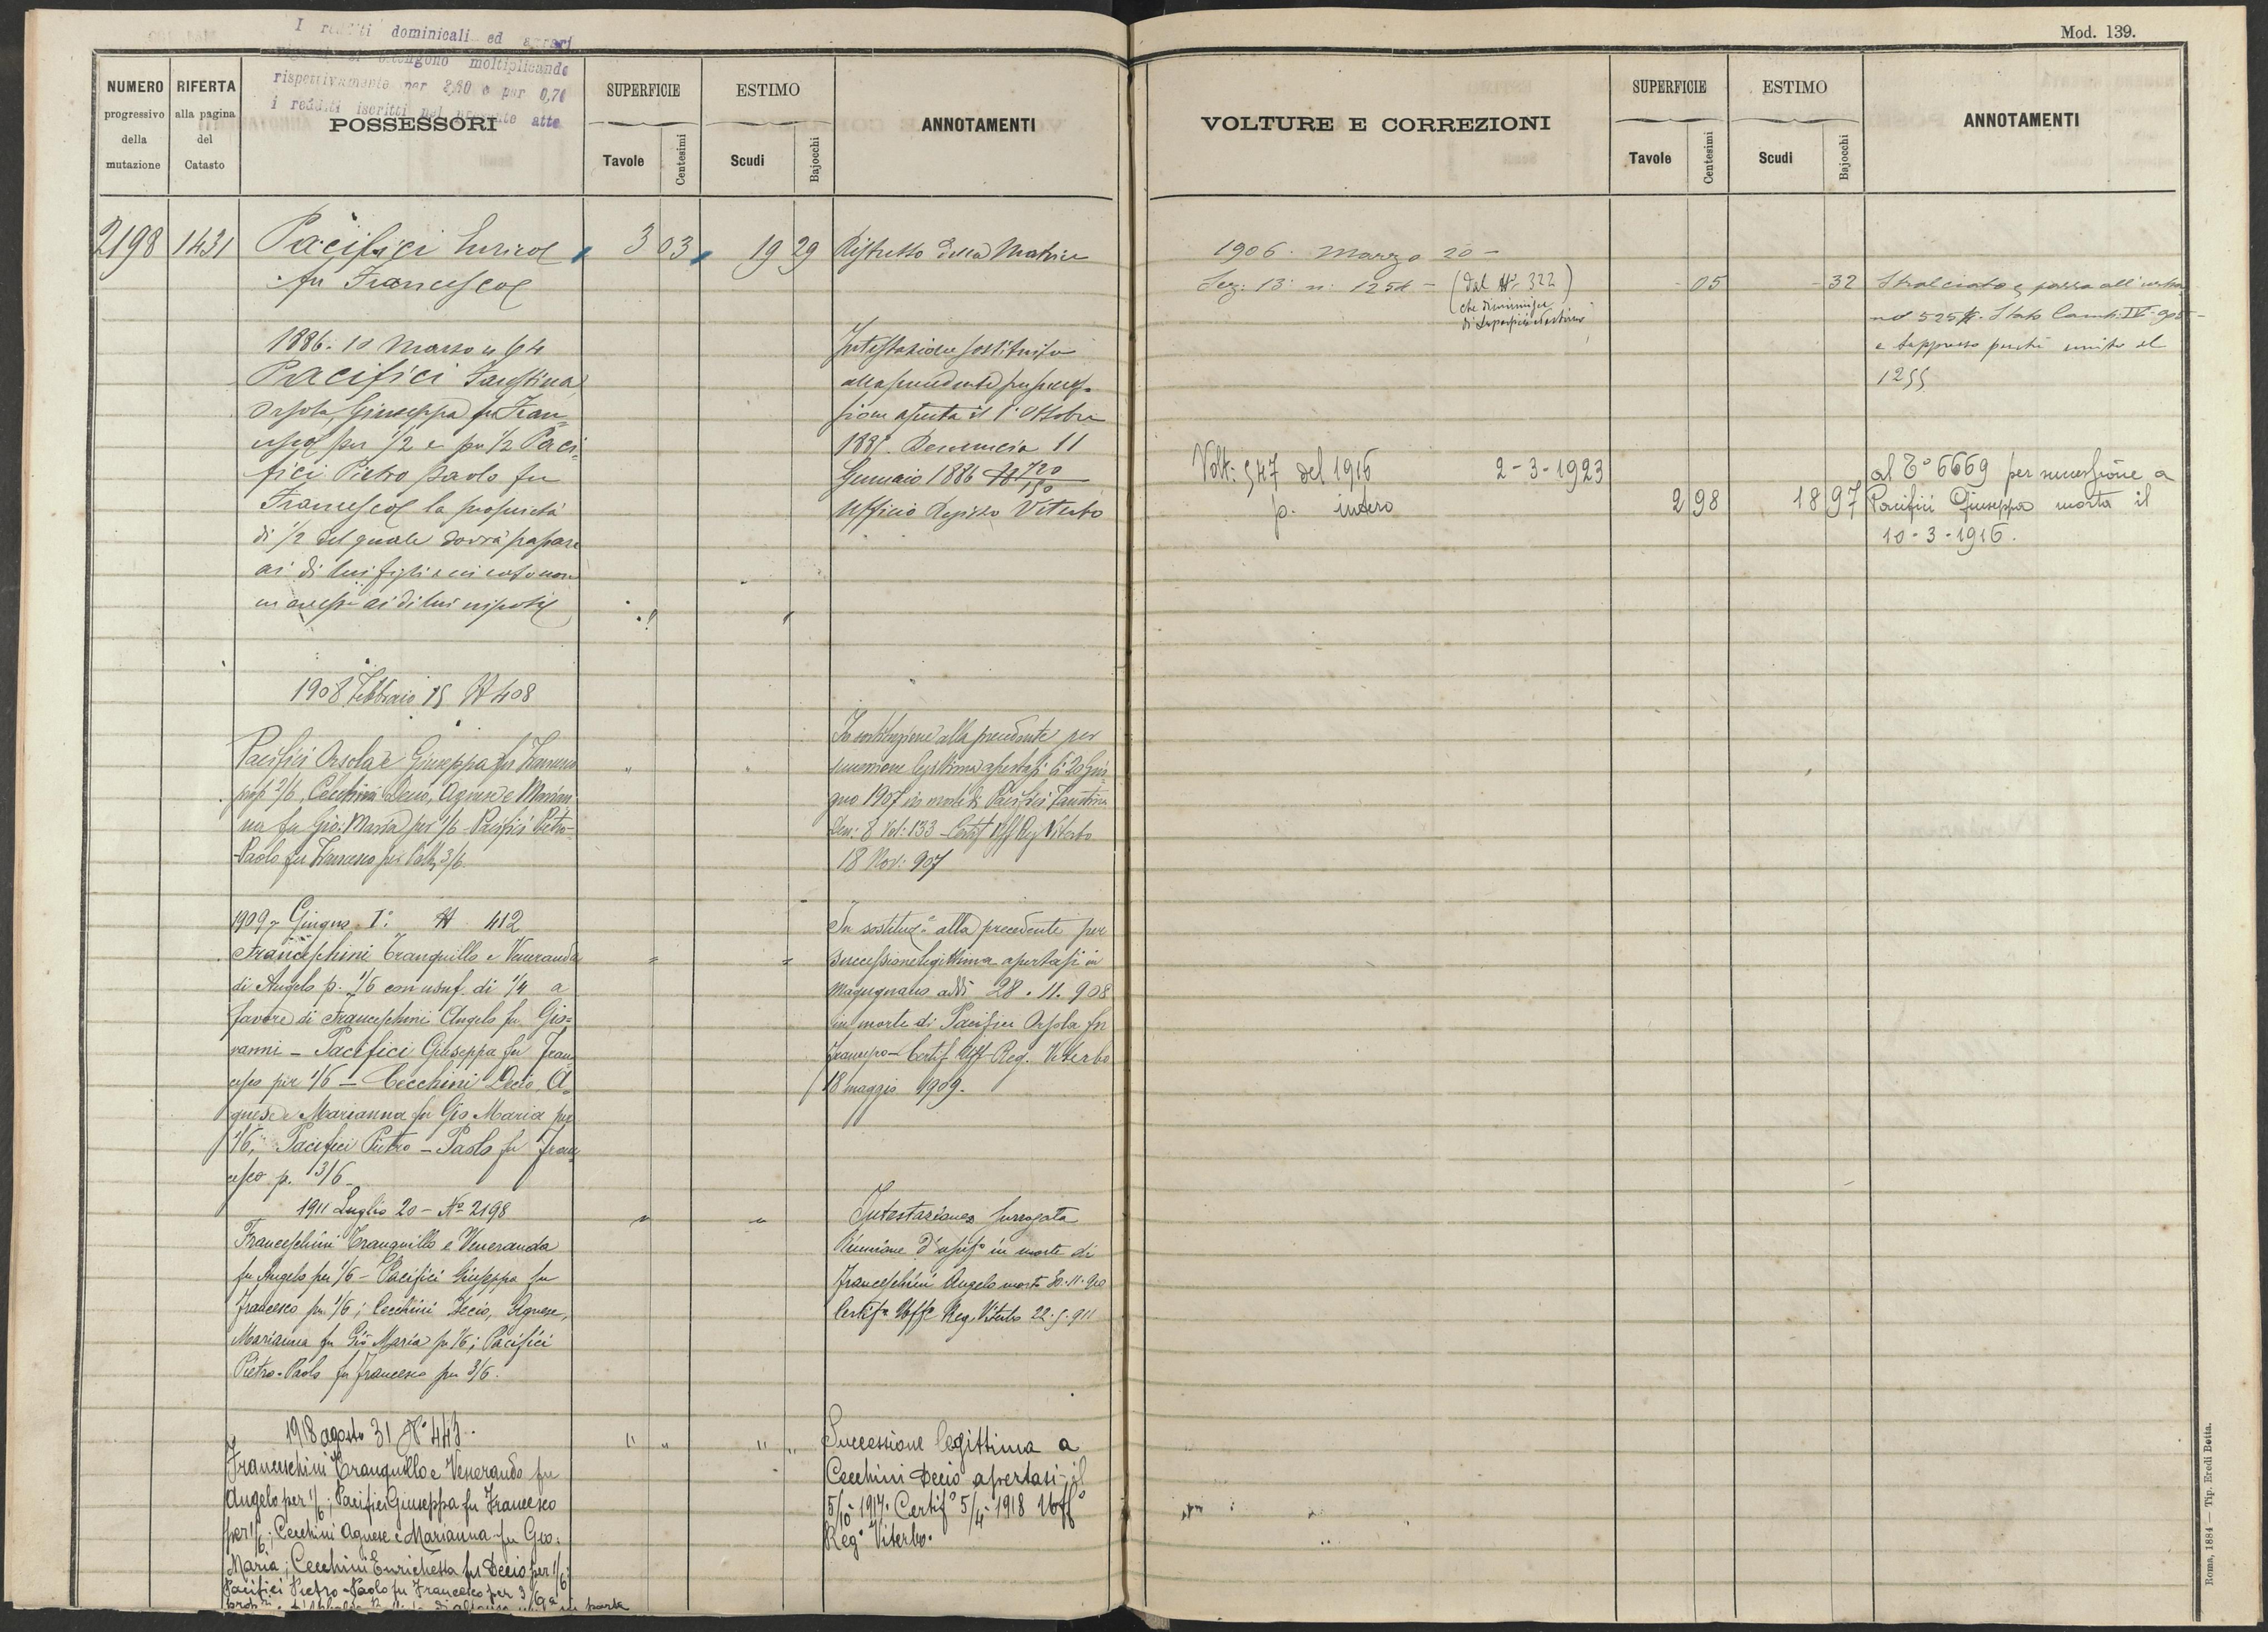 I redditi dominicali ed agrari
si ottengono moltiplicando
rispettivamente per 3,60 e per 0,70
i redditi iscritti nel presente atto
Mod. 139.
NUMERO
progressivo
della
mutazione
RIFERTA
alla pagina
del
Catasto
POSSESSORI
SUPERFICIE
Tavole
Centesimi
ESTIMO
Scudi
Bajocchi
ANNOTAMENTI
2198 1431 Pacifici Enrico 3 03 19 29 Ristretto della Matrice
fu Francesco
1886. 10 Marzo n 64
Pacifici Faustina
Orsola, Giuseppa fu Fran
cesco per 1/2 e per 1/2 Paci
fici Pietro Paolo fu
Francesco la proprietà
di 1/2 del quale dovrà passare
ai di lui figli e in
ai di lui nipoti
Intestazione sostituita
alla precedente per succes
sione aperta il 1º Ottobre
1885. Denuncia 11
Gennaio 1886 N 720
150
Ufficio Registro Viterbo
1908 Febbraio 15 N 408
Pacifici Orsola e Giuseppa fu Francesco
prop 2/6, Cecchini Decio, Agnese e Marian
na fu Gio: Maria per 1/6 - Pacifici Pietro-
Paolo fu Francesco per 3/6.
In sostituzione alla precedente per
successione legittima apertasi li 20 Giu
gno 1907 in morte di Pacifici Faustina
Den: 8 Vol: 133 - Certif Uff Reg Viterbo
18 Nov: 907
1909 Giugno 1º N 412
Franceschini Tranquillo e Veneranda
di Angelo p. 1/6 con usuf. di 1/4 a
favore di Franceschini Angelo fu Gio=
vanni - Pacifici Giuseppa fu Fran
cesco per 1/6 - Cecchini Decio A=
gnese e Marianna fu Gio Maria per
1/6, Pacifici Pietro - Paolo fu Fran
cesco p. 3/6 -
In sostituz.e alla precedente per
successione legittima apertasi in
Magugnano addì 28. 11. 908
in morte di Pacifici Orsola fu
Francesco - Certif Uff Reg. Viterbo
18 maggio 1909.
1911 Luglio 20 - Nº 2198
Franceschini Tranquillo e Veneranda
fu Angelo per 1/6 - Pacifici Giuseppa fu
Francesco per 1/6; Cecchini Decio, Agnese,
Marianna fu Gio Maria per 1/6; Pacifici
Pietro-Paolo fu Francesco per 3/6.
Intestazione surrogata
Riunione d'usuf.º in morte di
Franceschini Angelo morto 30-11-910
Certif.º Uff. Reg. Viterbo 22-5-911
1918 agosto 31 Nº 443.
Franceschini Tranquillo e Veneranda fu
Angelo per 1/6; Pacifici Giuseppa fu Francesco
per 1/6; Cecchini Agnese e Marianna fu Gio:
Maria; Cecchini Enrichetta fu Decio per 1/6;
Pacifici Pietro-Paolo fu Francesco per 3/6
Successione legittima a
Cecchini Decio apertasi il
5/10-1917. Certifº 5/4-1918 Uffº
Regº Viterbo.
VOLTURE E CORREZIONI
SUPERFICIE
Tavole
Centesimi
ESTIMO
Scudi
Bajocchi
ANNOTAMENTI
1906. Marzo 20 -
Sez: 13ª n: 1254 - (dal Nº 322) - 05 - 32 Stralciato e passa all'urbano
che diminuisce
di superficie ed estimo
nº 525
e soppresso perchè unito al
1255
Volt: 547 del 1916 2-3-1923
p. intero 2 98 18 97
al Tº 6669 per successione a
Pacifici Giuseppa morta il
10-3-1916.
Roma, 1884 — Tip. Eredi Botta.